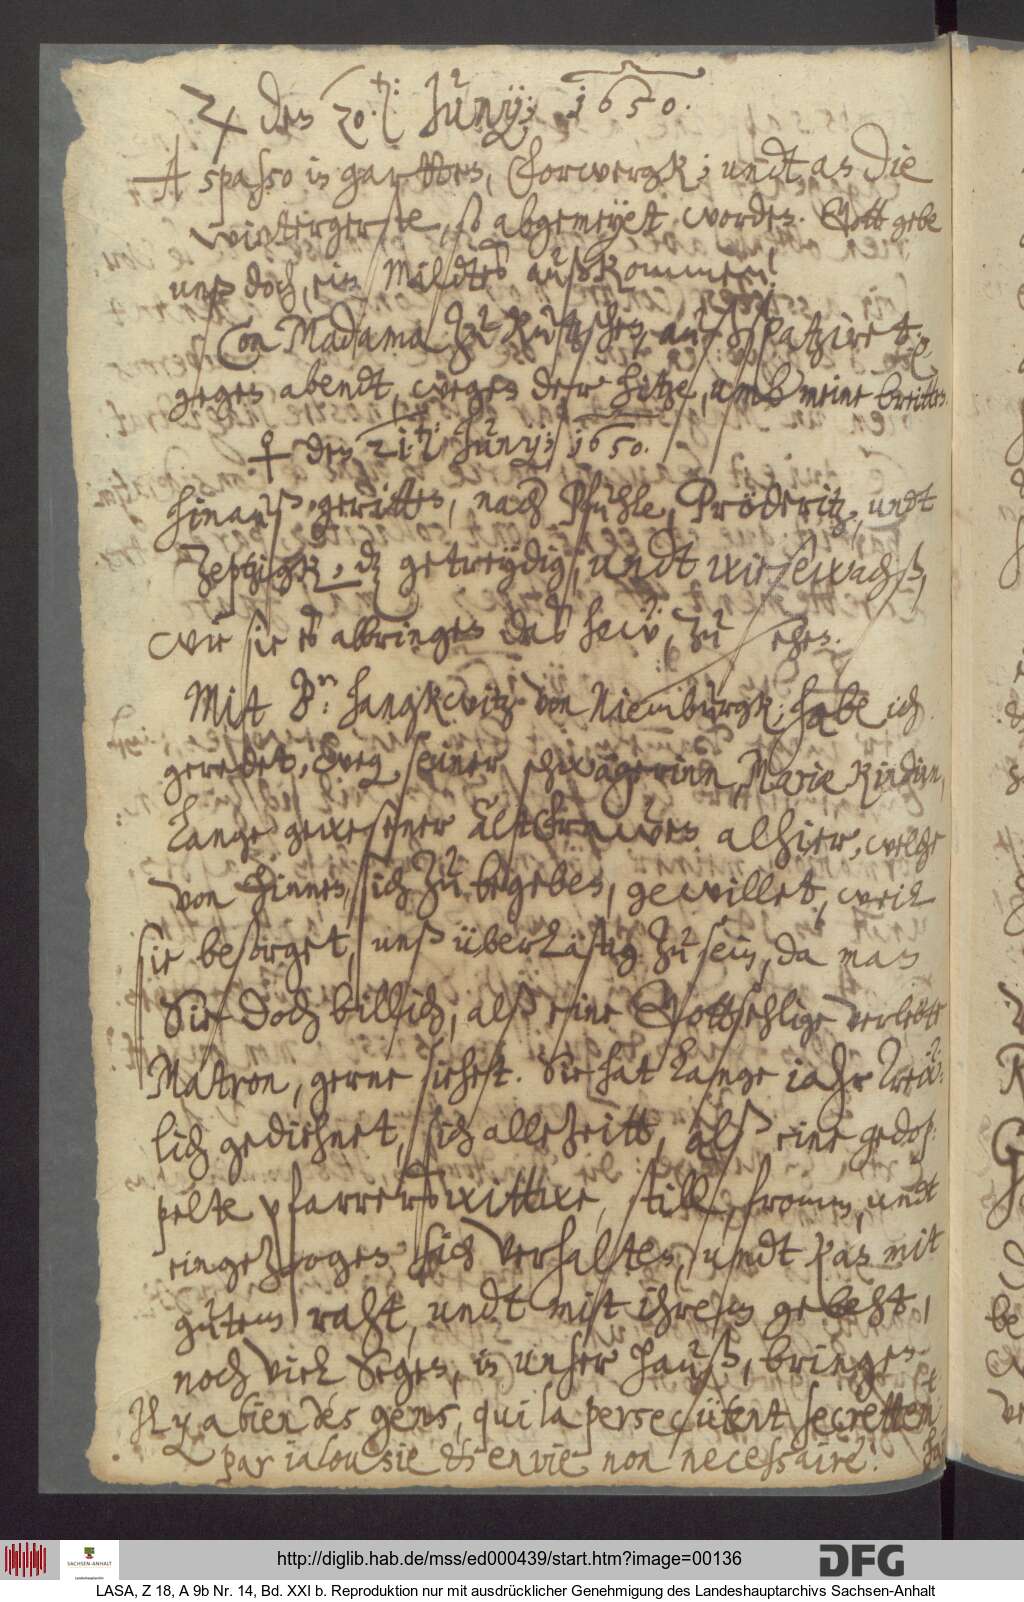 ♃ den 20.t: Juny: 1650.
A spasso in gartten, Vorwergk; undt an die
wintergerste, so abgemeyet worden. Gott gebe
unß doch, ein Mildtes außkommen!
Con Madama zu Kutzschen, auß spatziret:
gegen abendt, wegen der hitze, umb meine breitten.
♀ den 21.t: Juny: 1650.
hinauß geritten, nach Pfuhle, Pröderitz, undt
Zeptzigk, dz getreydig, undt wiesewachß,
wie sie es abbringen das hew, zu sehen.
Mit H.n hangkwitz von Niemburgk; habe ich
geredet, weg. seiner schwägerinn, Marie Rindin,
Lange gewesener Altfrawen alhier, welche
von hinnen, sich zu begeben, gewillet, weil
sie besorget, unß überlästig zu sein, da man
Sie doch billich, alß eine Gottsehlige verlebte
Matron, gerne siehet. Sie hat Lange iahr trew-
lich gediehnet, sich allezeitt, alß eine gedop-
pelte pfarrerswittwe, still, fromm, undt
eingezogen sich verhalten, undt kan mit
gutem raht, undt mit ihrem gebeht,
noch viel Segen, in unser hauß, bringen.
Il y a bien des gens, qui la persecütent secrettem̃t
par ialousie et envie non necessaire!
http://diglib.hab.de/mss/ed000439/start.htm?image=00136
SACHSEN-ANHALT
DFG
LASA, Z 18, A 9b Nr. 14, Bd. XXI b. Reproduktion nur mit ausdrücklicher Genehmigung des Landeshauptarchivs Sachsen-Anhalt